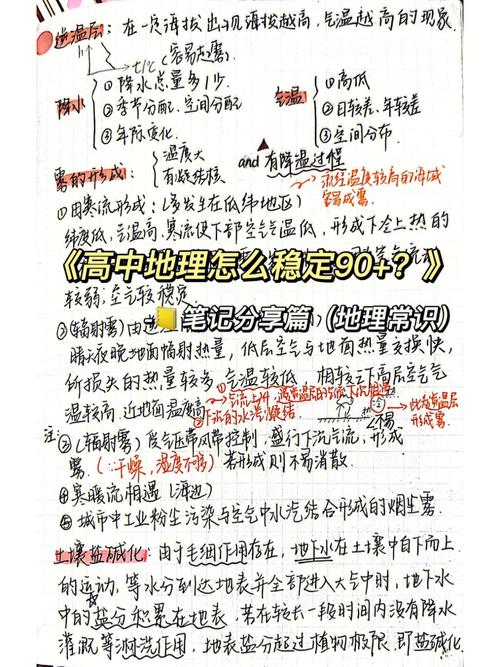 逆温层：在一定海拔出现海拔越高，气温越高的现象.
t/℃ (容易起雾)
降水 ①降水总量多少
②季节分配、空间分配
③年际变化.
气温 ①高低
②日较差、年较差
③空间分布.
雾的形成： 湿度大
有凝结核
and 有降温过程
流经温度较高的海域
容易成雾.
①因寒流形成：(多发生在低纬地区)
纬度低，气温高. 寒流使下部空气气温低，形成下冷上热的
《高中地理怎么稳定90+？》
较弱；空气较稳定
笔记分享篇（地理常识）
②(辐射雾)由
晴天夜晚地面辐射热量，低层空气与地面热量交换快，
所损失的热量较多，气温较低 相较于高层空气气
温较高. 近地面温度高
气流上升
下沉的水汽凝结.
注：
③(辐射雾)受气压带风带控制，盛行下沉气流，形成
雾.(∵干燥，湿度不够) 若形成则不易消散.
④寒暖流相遇(海边)
⑤城市中工业粉尘污染与空气中水汽结合形成的烟尘雾.
土壤盐碱化：由于毛细作用存在，地下水在土壤中自下而上
的运动，等水分到达地表并全部进入大气中时，地下水
中的盐分积累在地表，若在较长一段时间内没有降水
灌溉等淋洗作用，地表盐分超过植物极限，即盐碱化.